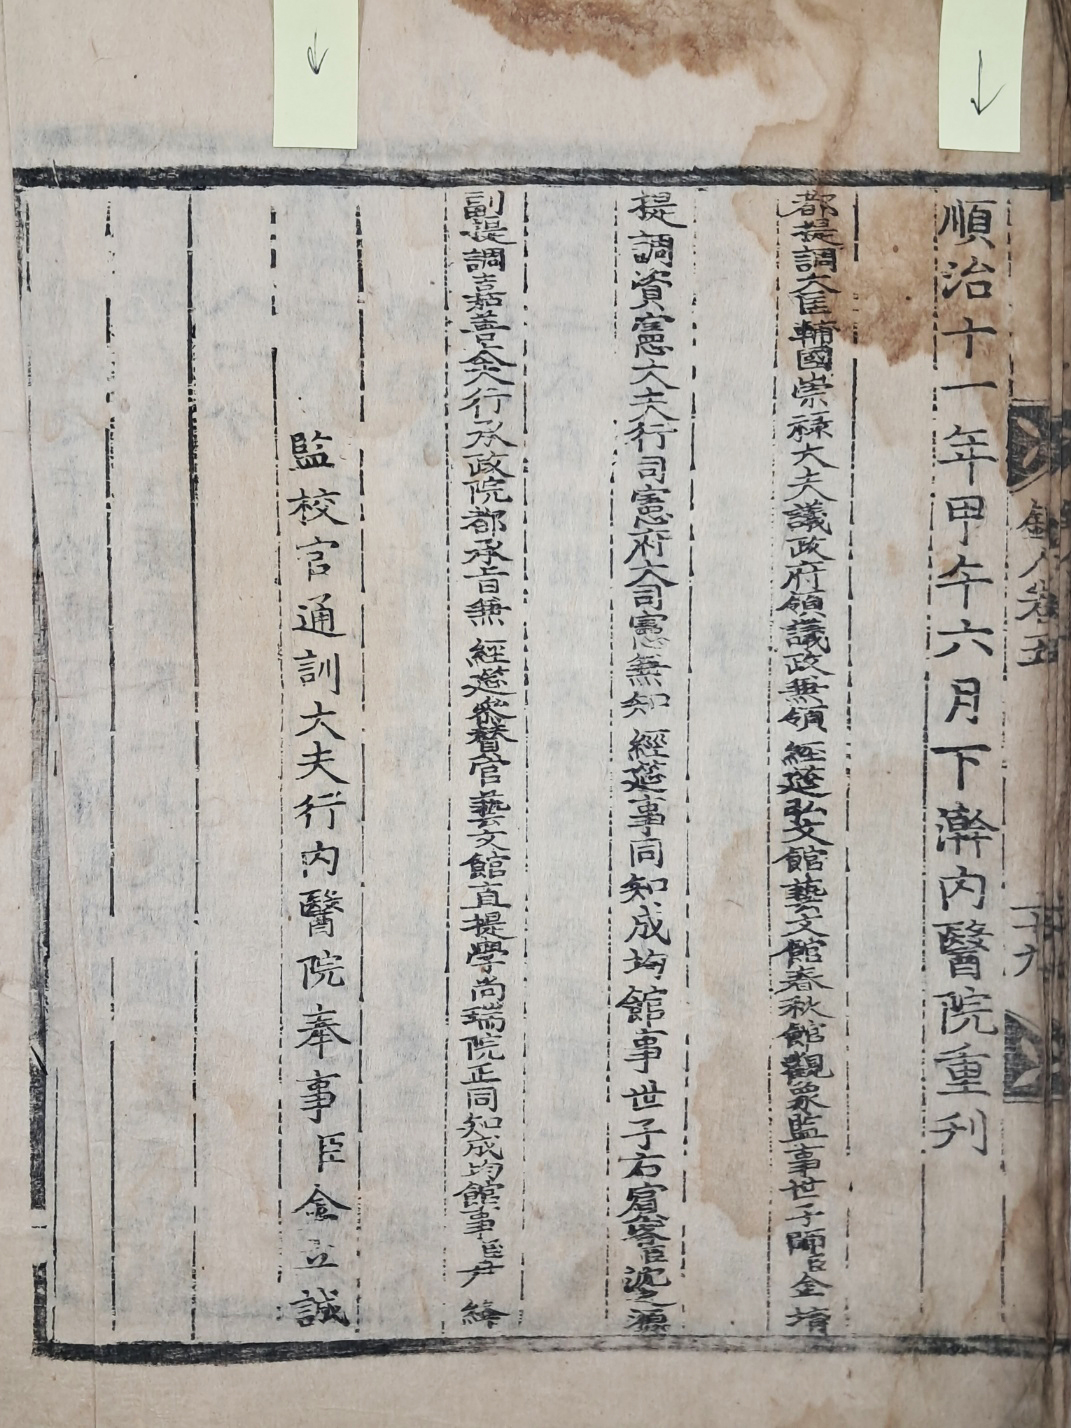 順治十一年甲午六月下澣內醫院重刋
都提調大匡輔國崇祿大夫議政府領議政兼領 經筵弘文館藝文館春秋館觀象監事世子師臣金堉
提調資憲大夫行司憲府大司憲兼知 經筵事同知成均館事世子右賓客臣沈之源
副提調嘉善大夫行承政院都承旨兼 經筵參贊官藝文館直提學尚瑞院正同知成均館事臣尹絳
監校官通訓大夫行內醫院奉事臣金立誠
卷五
五十九